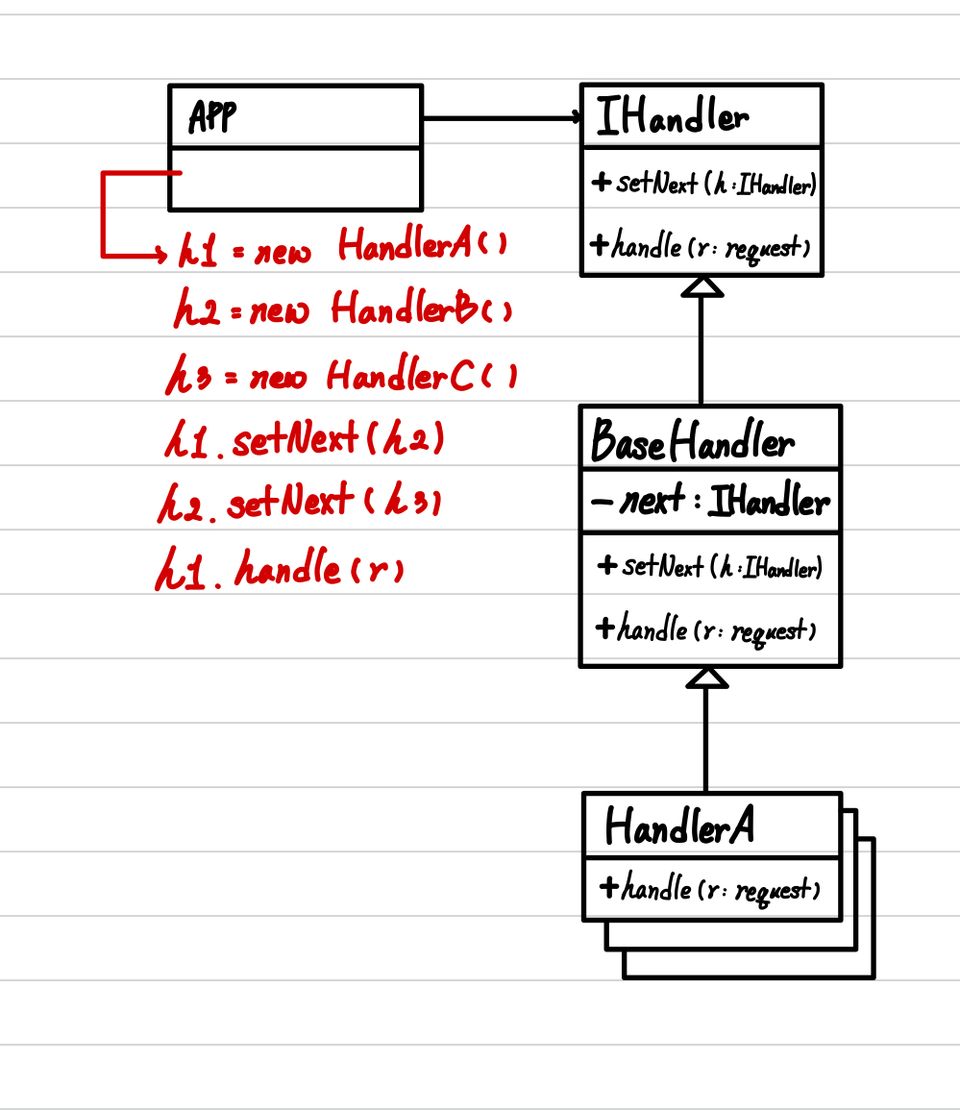 APP
h1 = new HandlerA()
h2 = new HandlerB()
h3 = new HandlerC()
h1.setNext(h2)
h2.setNext(h3)
h1.handle(r)
IHandler
+ setNext(h:IHandler)
+ handle(r: request)
BaseHandler
- next: IHandler
+ setNext(h:IHandler)
+ handle(r: request)
HandlerA
+ handle(r: request)